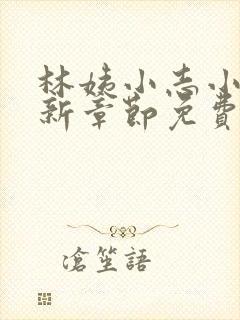 林姨小志小
新章節免費
滄笙語